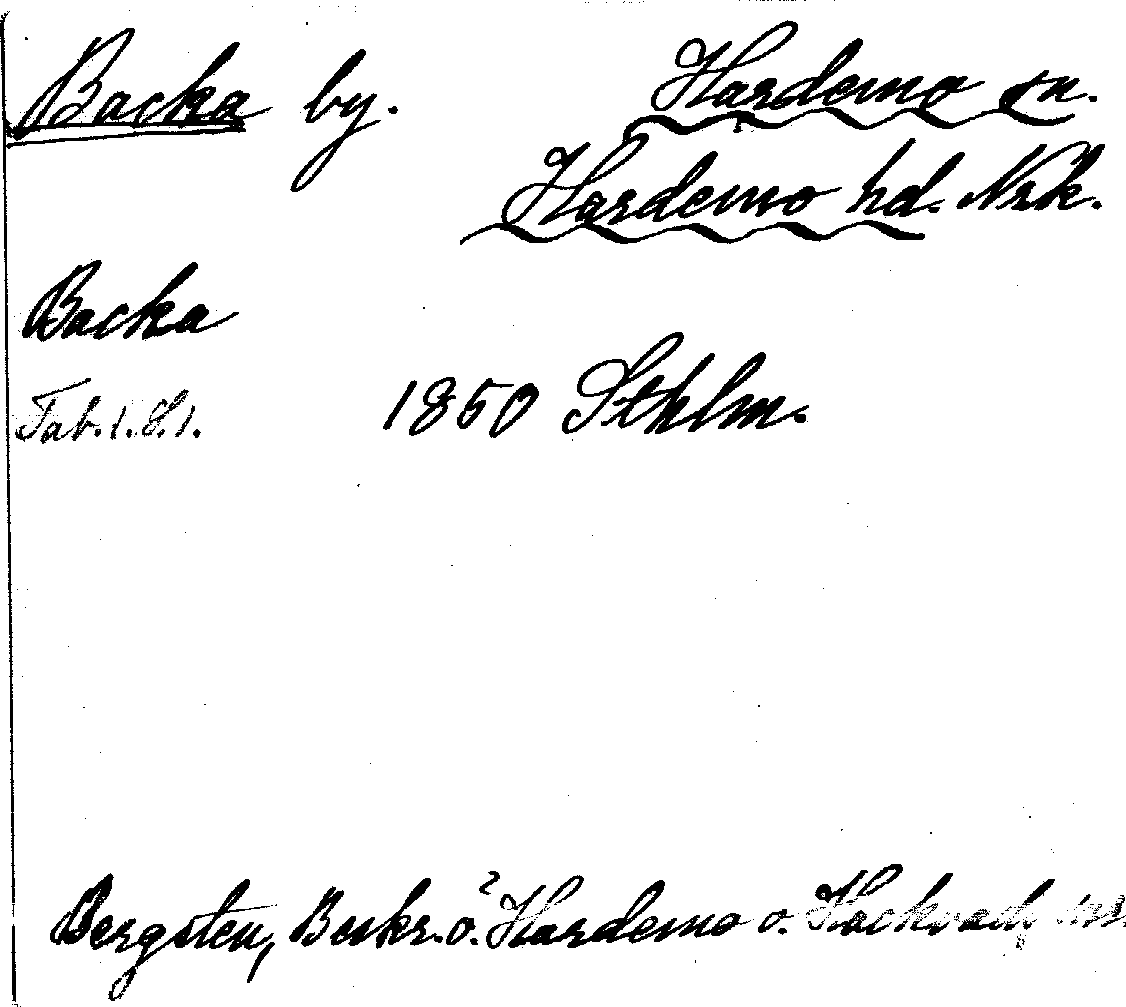 Backa by. Hardemo sn.
Hardemo hd. Nrk.
Backa
Tab. 1. S. 1.
1850 Sthlm.
Bergsten, Beskr. ö. Hardemo o. Hackvads snr.